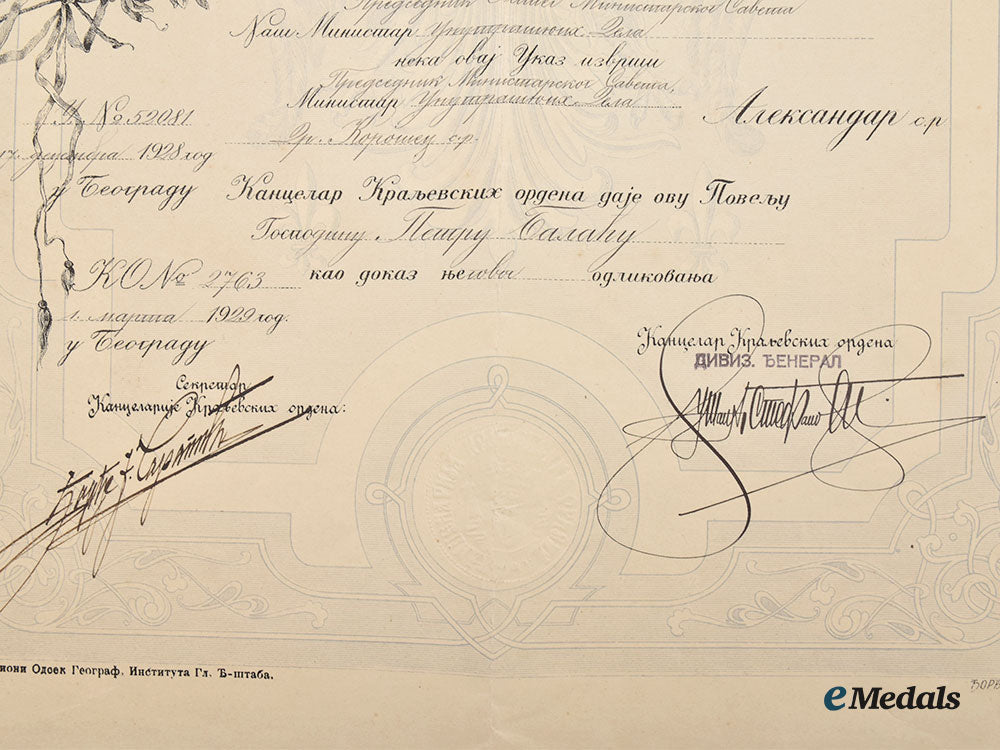 Председник Нашег Министарског Савета
Наш Министар Унутрашњих Дела
нека овај Указ изврши
Председник Министарског Савета,
Министар Унутрашњих Дела
Александар с.р
№ 52081
Др. Корошец с.р.
децембра 1928 год
у Београду
Канцелар Краљевских ордена даје ову Повељу
Господину Петру
КО № 2763 као доказ његовог одликовања
1. марта 1929 год.
у Београду
Канцелар Краљевских ордена
ДИВИЗ. ЂЕНЕРАЛ
Секретар
Канцеларије Краљевских ордена:
Одсек Географ. Института Гл. Ђ-штаба.
eMedals